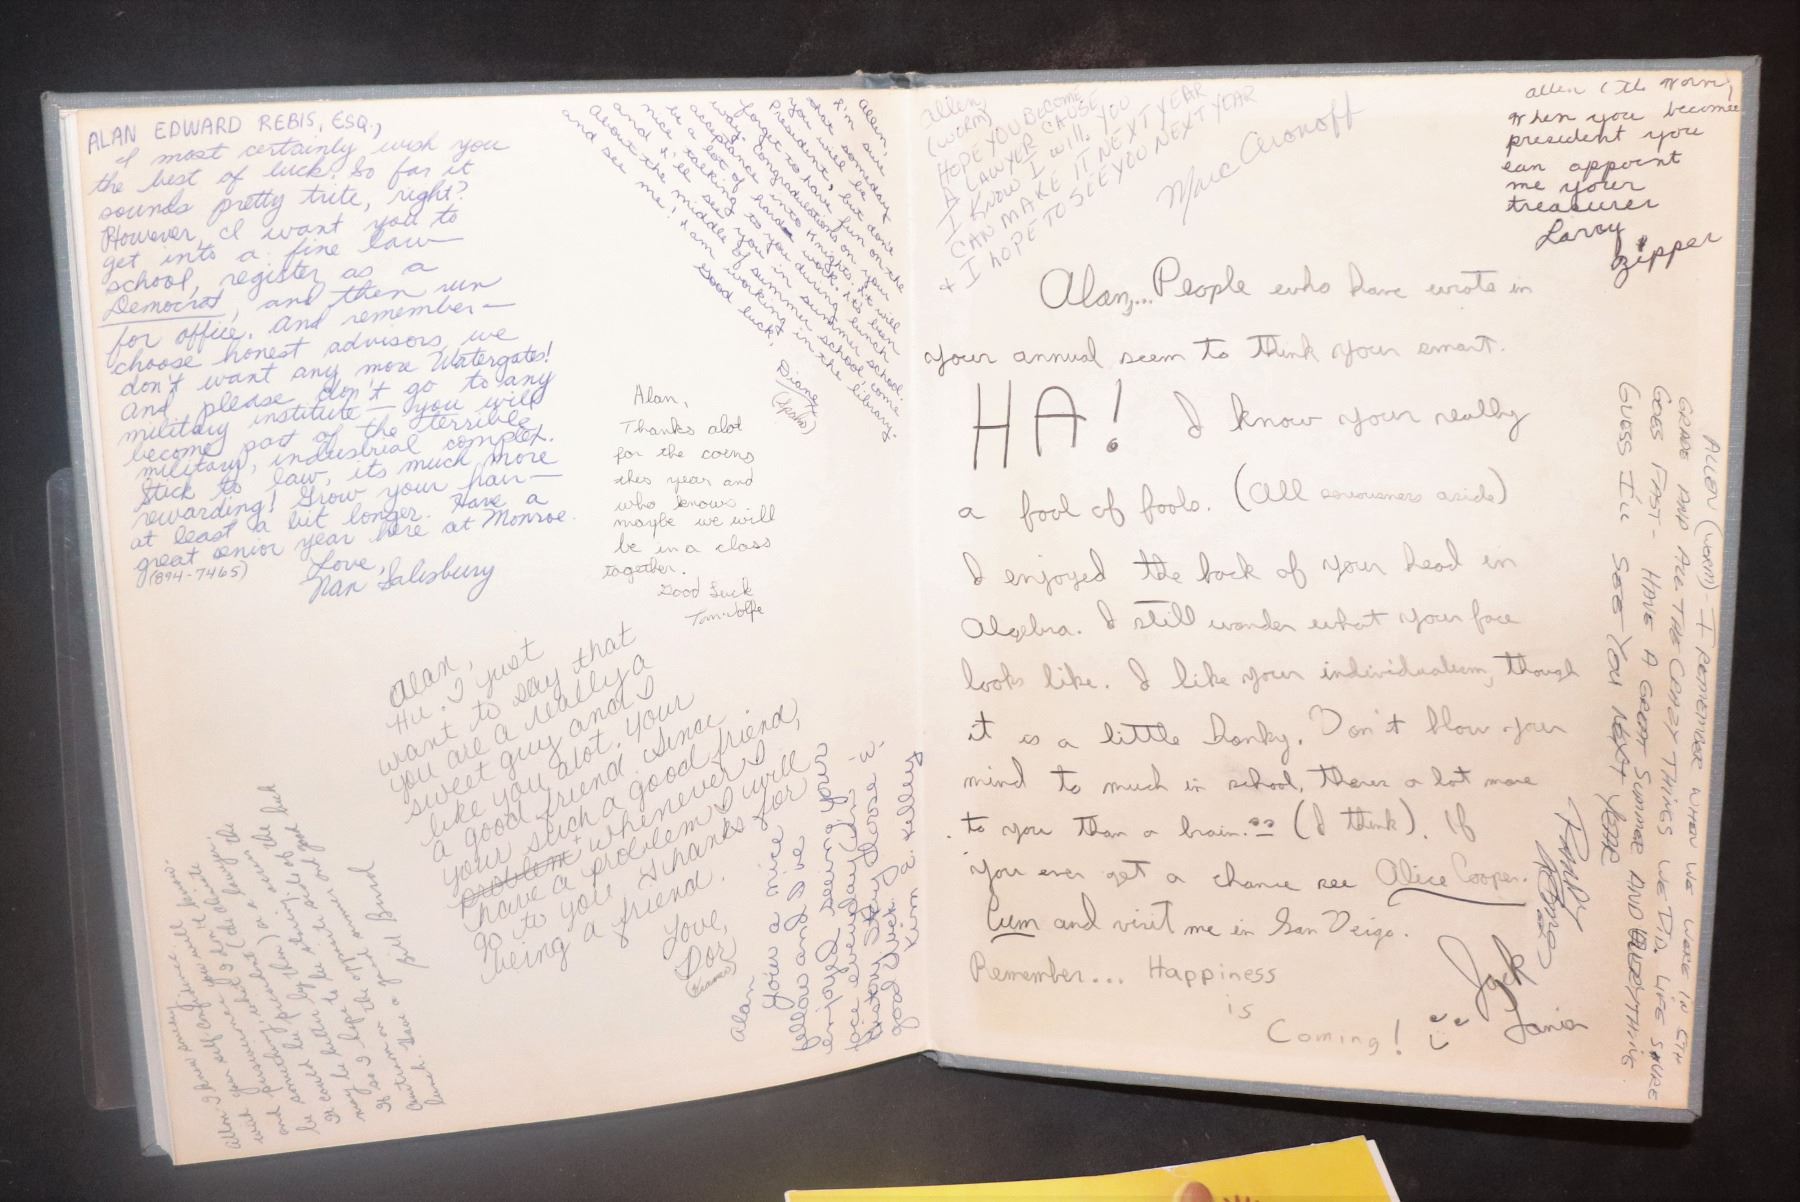 ALAN EDWARD REBIS, ESQ.,
I most certainly wish you
the best of luck! So far it
sounds pretty trite, right?
However, I want you to
get into a fine law
school, register as a
Democrat, and then run
for office. And remember—
choose honest advisors, we
don't want any more Watergates!
And please don't go to any
military institute — you will
become part of the terrible
military, industrial complex.
Stick to law, its much more
rewarding! Grow your hair—
at least a bit longer. Have a
great senior year here at Monroe.
(894-7465)
Love,
Nan Salisbury
Allen,
I'm sure
that someday
you will be
President, but don't
forget to have fun on the
way. Congradulations on your
acceptance into Knights. It will
be a lot of hard work. It's been
nice talking to you during lunch
and I'll see you in summer school.
About the middle of summer school, come
and see me! I am working in the library.
Good luck,
Diane
Alan,
Thanks alot
for the coins
this year and
who knows
maybe we will
be in a class
together.
Good Luck
Tom Wolfe
Alan,
Hi. I just
want to say that
you are a really a
sweet guy and I
like you alot. Your
a good friend. Since
your such a good friend,
problem + whenever I
have a problem I will
go to you. Thanks for
being a friend.
Love,
Dor
Allan I know success will know
your self confidence you will be
with perserverence
and persuading
be some be by then)
It could better be
may be
If so I hope the opp
Have a good summer
lunch.
Bill Bund
Alan
your a nice
fellow and I've
enjoyed seeing your
face everyday in
history. Stay these
good luck
Kim A. Kelley
Allen
(worm)
HOPE YOU BECOME
A LAWYER CAUSE
I KNOW I WILL. YOU
CAN MAKE IT NEXT YEAR
& I HOPE TO SEE YOU NEXT YEAR
Marc Aronoff
allen (the worm)
When you become
president you
can appoint
me your
treasurer
Larry
Zipper
Alan,... People who have wrote in
your annual seem to think your smart.
HA! I know your really
a fool of fools. (All seriousness aside)
I enjoyed the back of your head in
Algebra. I still wonder what your face
looks like. I like your individualism, though
it is a little honky. Don't blow your
mind to much in school, theres a lot more
to you than a brain. (I think). If
you ever get a chance see Alice Cooper.
Cum and visit me in San Deigo.
Remember... Happiness
is
Coming!
Jack
Lanior
ALLEN (WORM) - I REMEMBER WHEN WE WERE IN 6TH
GRADE AND ALL THE CRAZY THINGS WE DID. LIFE SURE
GOES FAST - HAVE A GREAT SUMMER AND EVERYTHING
GUESS ILL SEE YOU NEXT YEAR
Randy